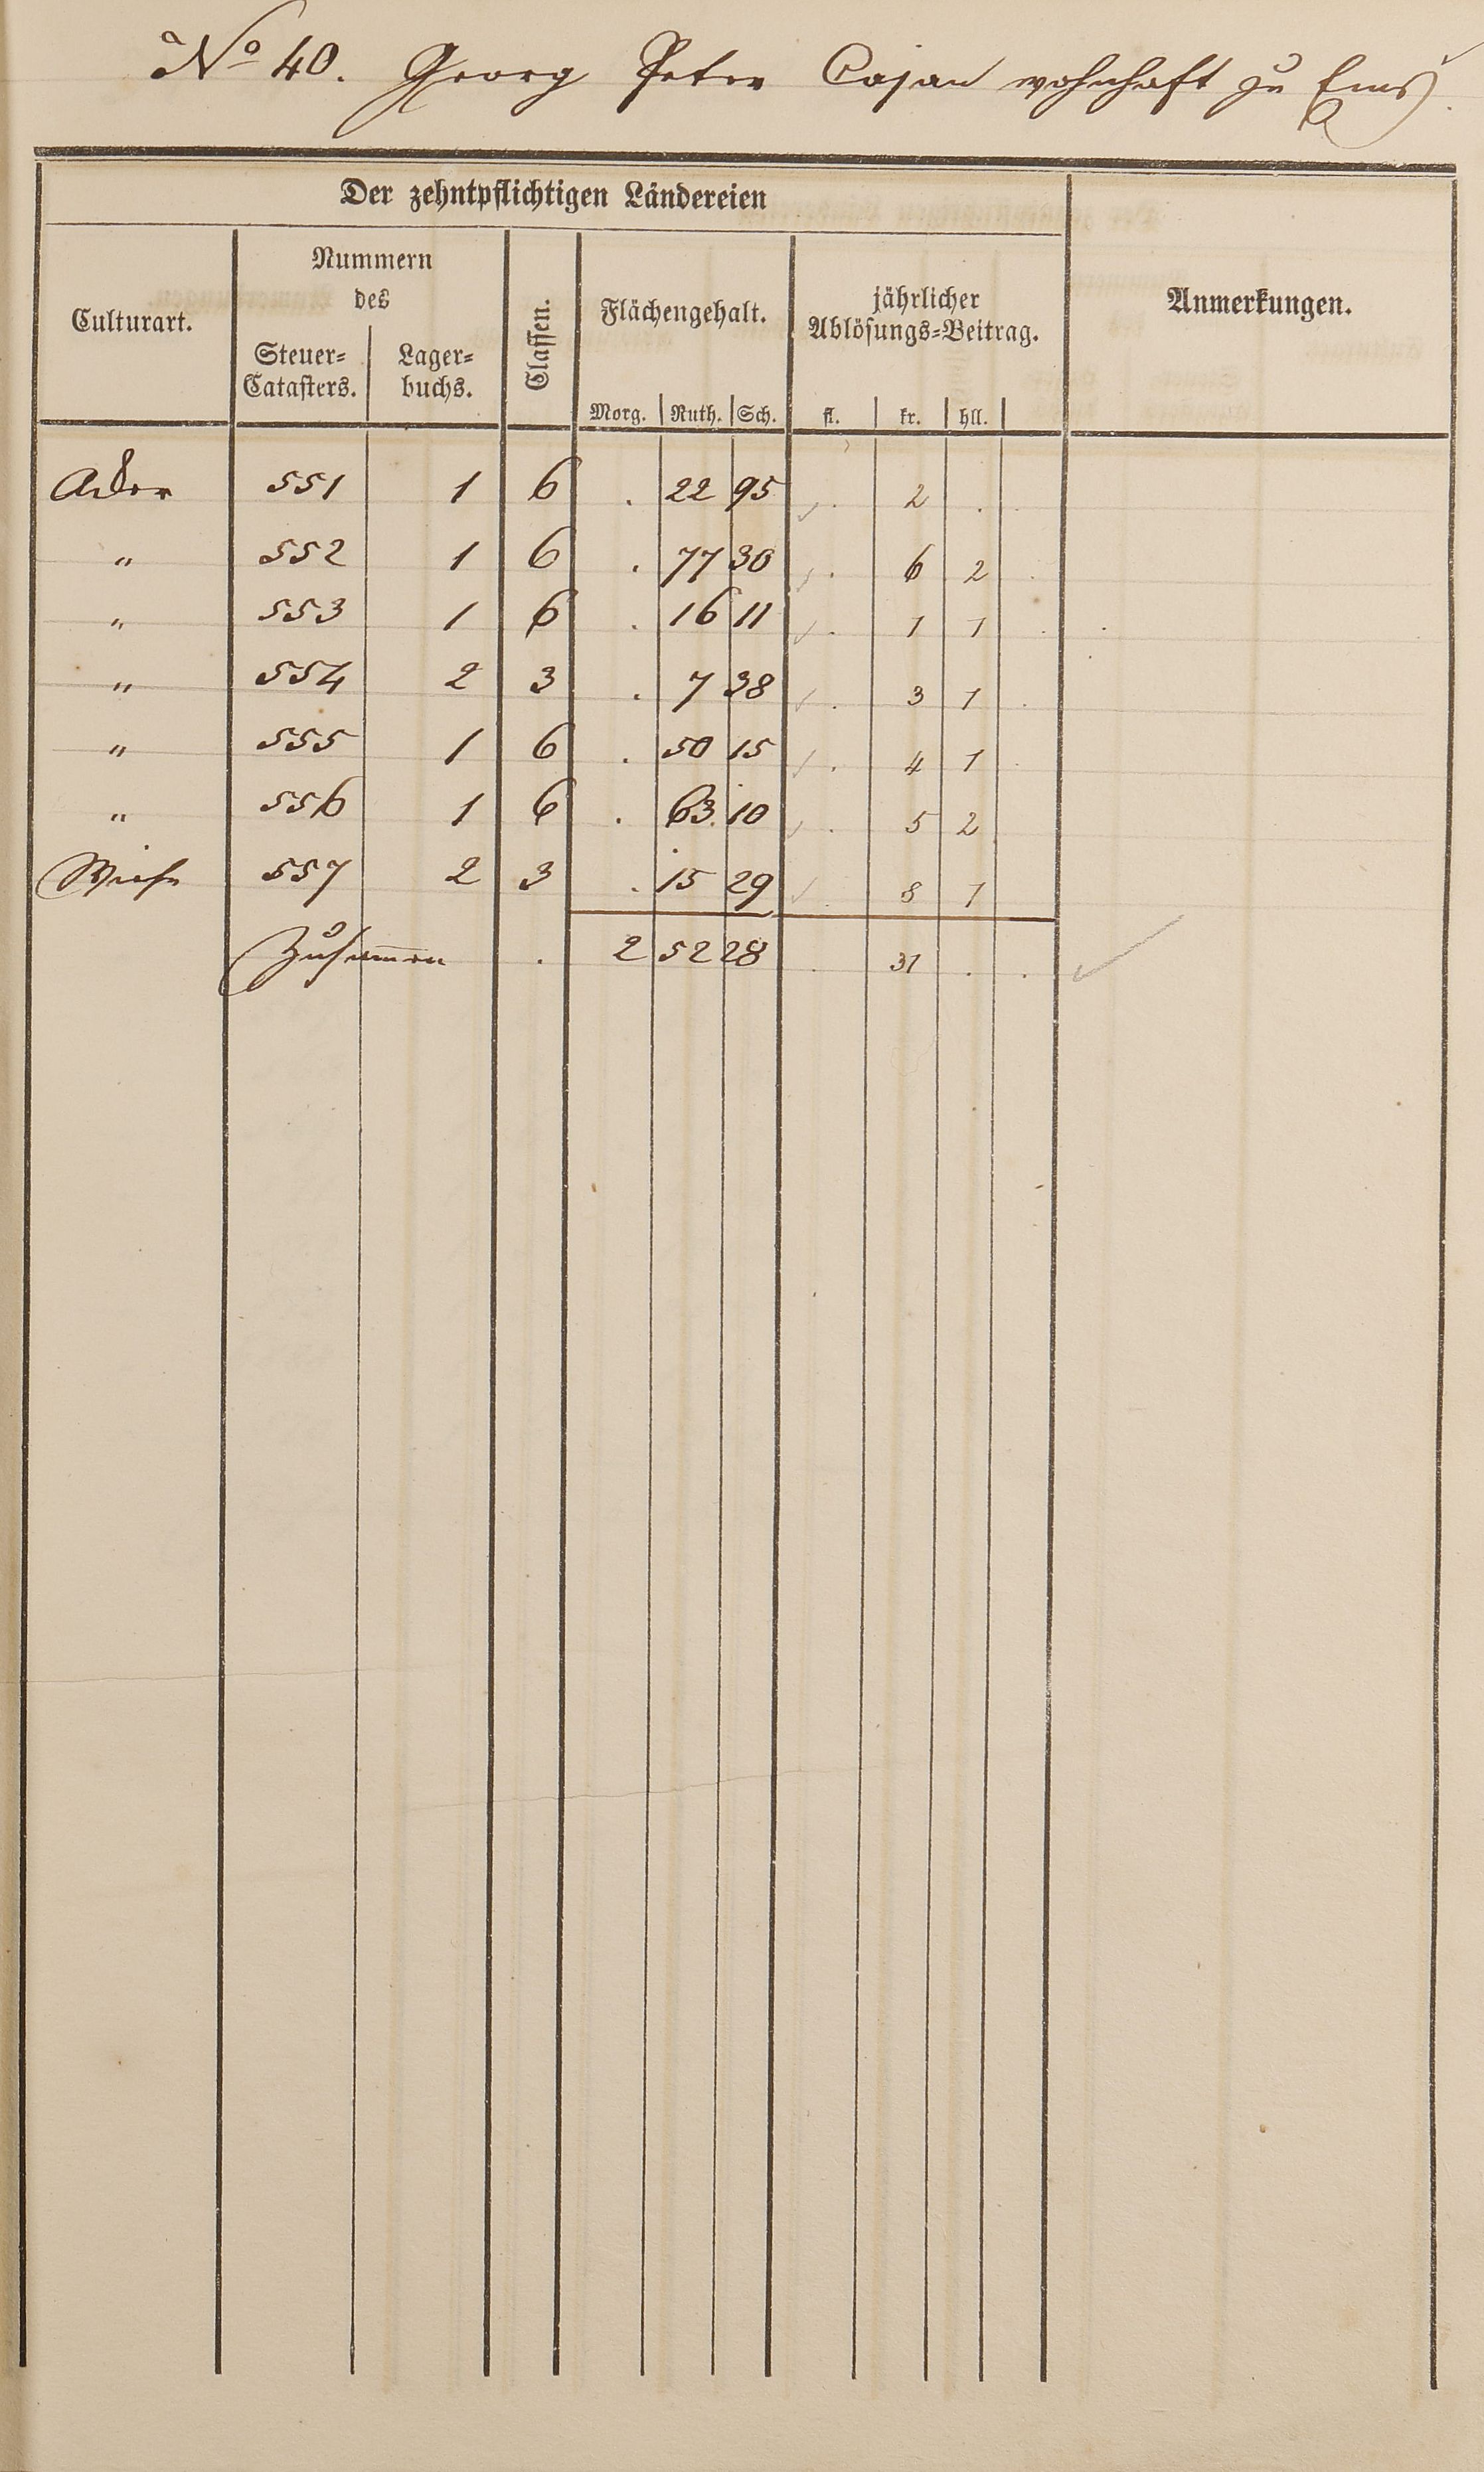 No 40. Georg Peter Casan wohnhaft zu Ems
Der zehntpflichtigen Ländereien
Culturart. Nummern des Steuer-Catasters. Lager-buchs. Classen. Flächengehalt. jährlicher Ablösungs-Beitrag. Anmerkungen.
Morg. Ruth. Sch. fl. kr. hll.
Acker 551 1 6 . 22 95 . 2 .
" 552 1 6 . 77 30 . 6 2
" 553 1 6 . 16 11 . 1 1
" 554 2 3 . 7 38 . 3 1
" 555 1 6 . 50 15 . 4 1
" 556 1 6 . 63 10 . 5 2
Wiese 557 2 3 . 15 29 . 8 1
Zusammen . 2 52 28 . 31 . .